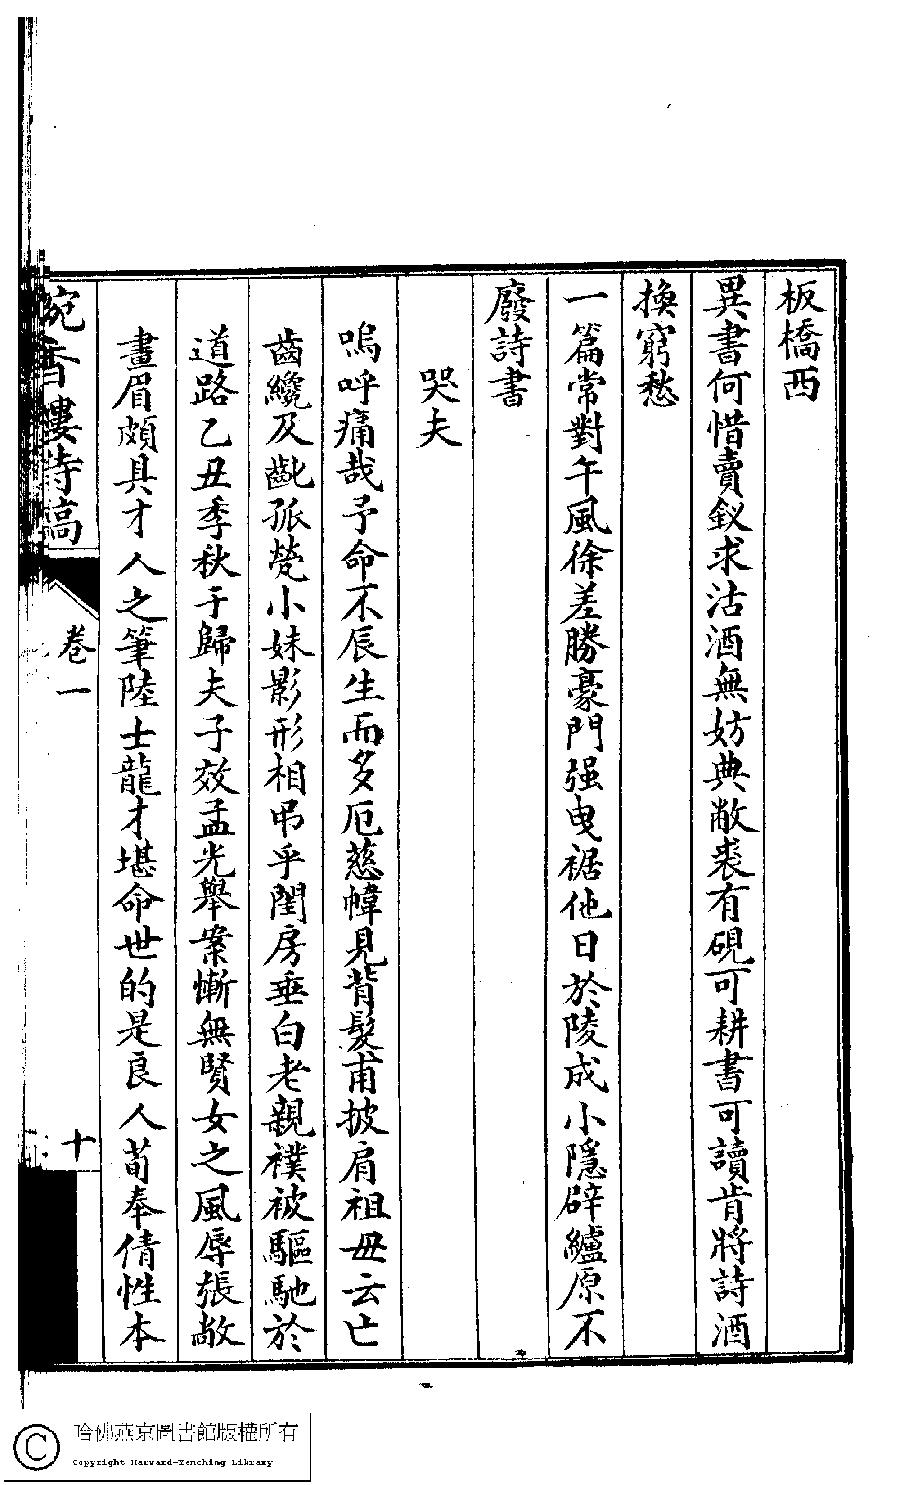 板橋西
異書何惜賣釵求沽酒無妨典敝裘有硯可耕書可讀肯將詩酒
換窮愁
一篇常對午風徐差勝豪門强曳裾他日於陵成小隱辟纑原不
廢詩書
哭夫
嗚呼痛哉予命不辰生而多厄慈幃見背髮甫披肩祖毋云亡
齒纔及齔孤煢小妹影形相弔乎閨房垂白老親襆被驅馳於
道路乙丑季秋于歸夫子效孟光舉案慚無賢女之風辱張敞
畫眉頗具才人之筆陸士龍才堪命世的是良人荀奉倩性本
琬香樓詩稿
卷一
十
哈佛燕京圖書館版權所有
Copyright Harvard-Yenching Library